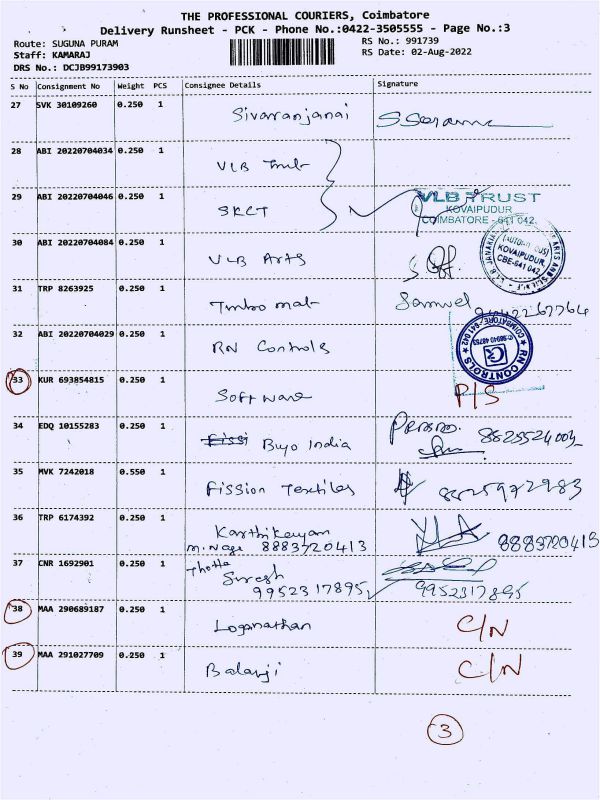 THE PROFESSIONAL COURIERS, Coimbatore
Delivery Runsheet - PCK - Phone No.:0422-3505555 - Page No.:3
Route: SUGUNA PURAM
Staff: KAMARAJ
DRS No.: DCJB99173903
RS No.: 991739
RS Date: 02-Aug-2022
S No Consignment No Weight PCS Consignee Details Signature
27 SVK 30109260 0.250 1 Sivaranjanai
28 ABI 20220704034 0.250 1 VLB Trust
29 ABI 20220704046 0.250 1 SKCT
VLB TRUST
KOVAIPUDUR
COIMBATORE - 641 042.
30 ABI 20220704084 0.250 1 VLB Arts
(AUTONOMOUS)
KOVAIPUDUR
CBE-641 042.
31 TRP 8263925 0.250 1 Samuel
32 ABI 20220704029 0.250 1 RN Controls
COIMBATORE-641 042
RN CONTROLS
33 KUR 693854815 0.250 1 Software P/S
34 EDQ 10155283 0.250 1 Fissi Buyo India
35 MVK 7242018 0.550 1 Fission Textiles 8825972983
36 TRP 6174392 0.250 1 Karthikeyan
8883720413 8883720413
37 CNR 1692901 0.250 1 Thotta
Suresh
9952317895 9952317895
38 MAA 290689187 0.250 1 Loganathan C/N
39 MAA 291027709 0.250 1 Balaji C/N
3